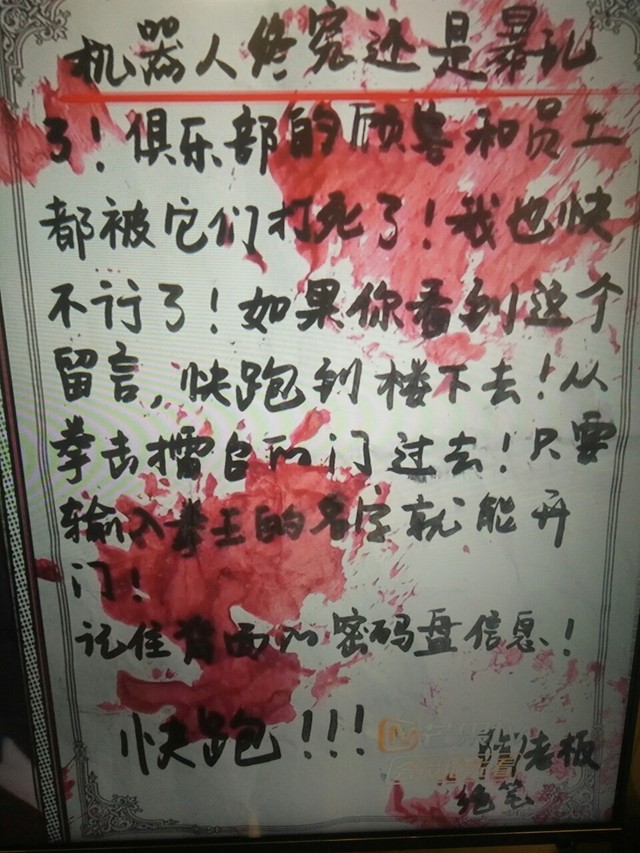 机器人终究还是暴乱
了！俱乐部的顾客和员工
都被它们打死了！我也快
不行了！如果你看到这个
留言，快跑到楼下去！从
拳击擂台的门过去！只要
输入拳王的名字就能开
门！
记住背面的密码盘信息！
快跑！！！
老板
绝笔